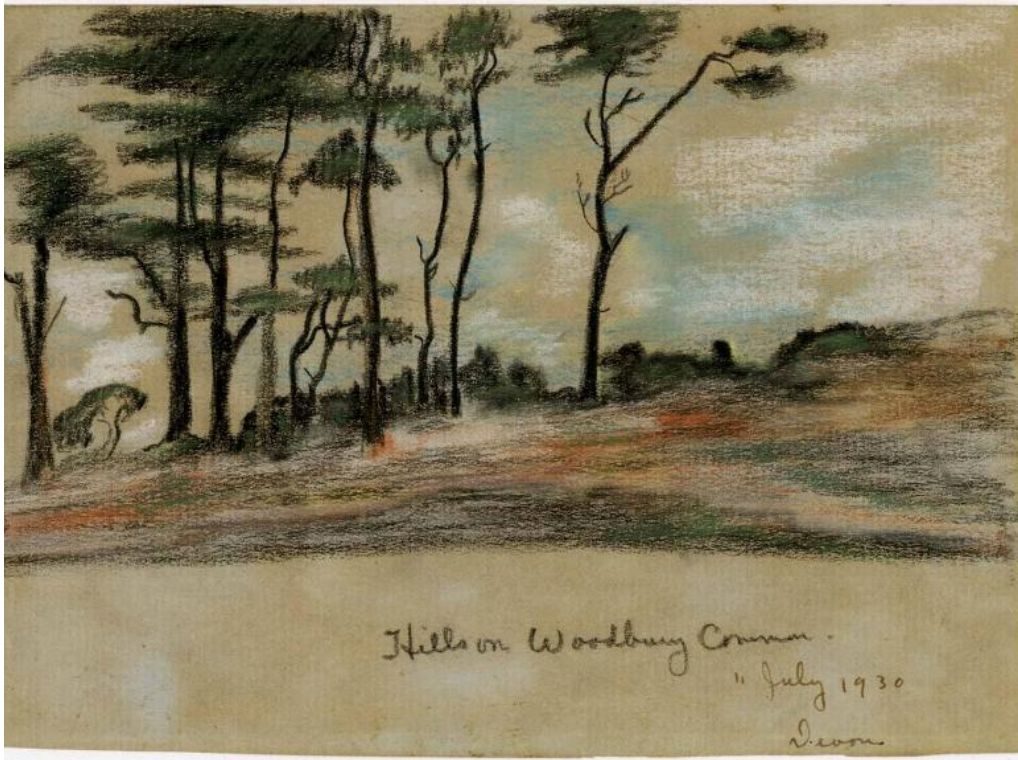 Hills on Woodbury Common.
" July 1930
Devon